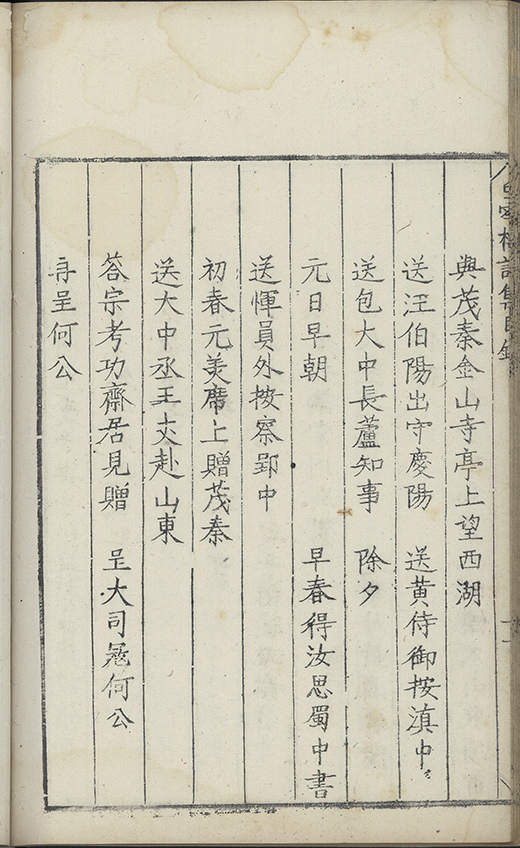 白雪樓詩集目錄
與茂秦金山寺亭上望西湖
送汪伯陽出守慶陽　送黃侍御按滇中
送包大中長蘆知事　除夕
元日早朝　早春得汝思蜀中書
送惲員外按察郢中
初春元美席上贈茂秦
送大中丞王丈赴山東
答宗考功齋居見贈　呈大司寇何公
再呈何公